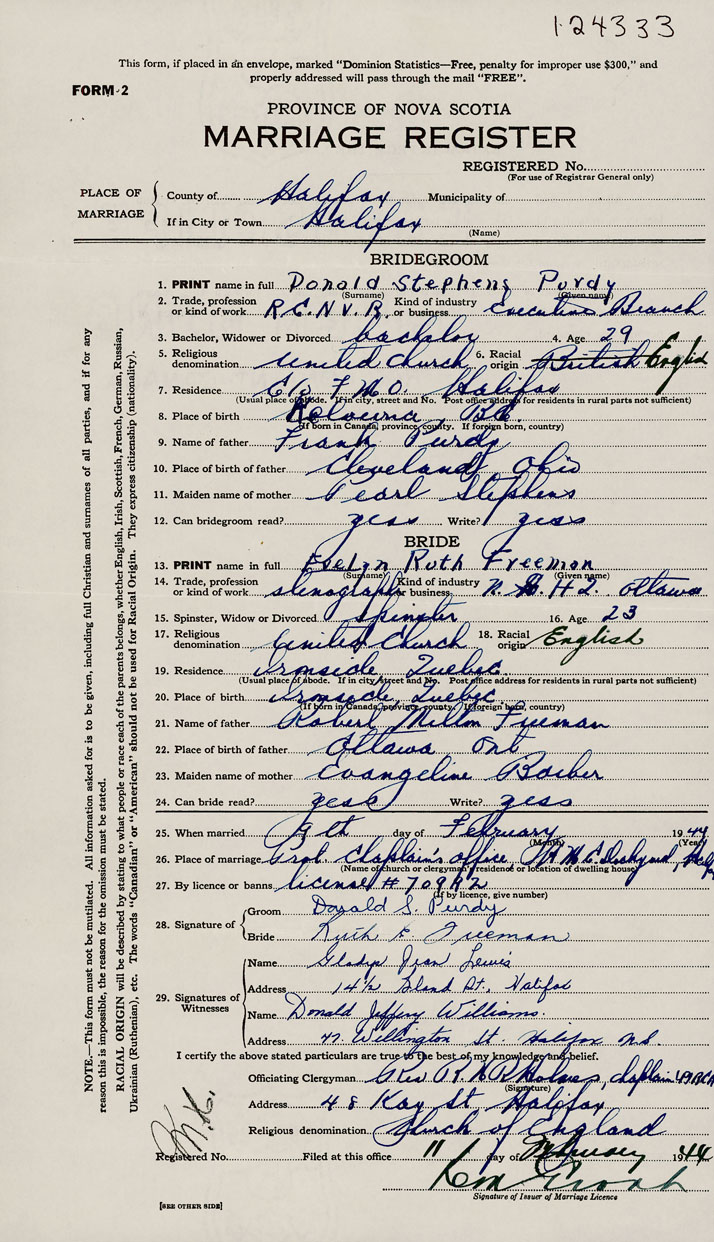 124333
This form, if placed in an envelope, marked "Dominion Statistics—Free, penalty for improper use $300," and
properly addressed will pass through the mail "FREE".
FORM-2
PROVINCE OF NOVA SCOTIA
MARRIAGE REGISTER
REGISTERED No.
(For use of Registrar General only)
PLACE OF MARRIAGE
County of Halifax Municipality of
If in City or Town Halifax
(Name)
BRIDEGROOM
1. PRINT name in full Donald Stephens Purdy
(Surname) (Given name)
2. Trade, profession or kind of work R.C.N.V.R. Kind of industry or business Executive Branch
3. Bachelor, Widower or Divorced bachelor 4. Age 29
5. Religious denomination United Church 6. Racial origin British English
7. Residence C/o F.M.O. Halifax
(Usual place of abode. If in city, street and No. Post office address for residents in rural parts not sufficient)
8. Place of birth Kelowna, BC
(If born in Canada, province, county. If foreign born, country)
9. Name of father Frank Purdy
10. Place of birth of father Cleveland, Ohio
11. Maiden name of mother Pearl Stephens
12. Can bridegroom read? yess Write? yess
BRIDE
13. PRINT name in full Evelyn Ruth Freeman
(Surname) (Given name)
14. Trade, profession or kind of work stenographer Kind of industry or business N.S. H.Q. Ottawa
15. Spinster, Widow or Divorced Spinster 16. Age 23
17. Religious denomination United Church 18. Racial origin English
19. Residence Ironside, Quebec
(Usual place of abode. If in city, street and No. Post office address for residents in rural parts not sufficient)
20. Place of birth Ironside, Quebec
(If born in Canada, province, county. If foreign born, country)
21. Name of father Robert Milton Freeman
22. Place of birth of father Ottawa Ont
23. Maiden name of mother Evangeline Barber
24. Can bride read? yess Write? yess
25. When married 9th day of February 1944
(Month) (Year)
26. Place of marriage Prot. Chaplain's office H.M.C. Dockyard,
(Name of church or clergyman's residence or location of dwelling house)
27. By licence or banns license # 70992
(If by licence, give number)
28. Signature of
Groom Donald S. Purdy
Bride Ruth E. Freeman
29. Signatures of Witnesses
Name Gladys Jean Lewis
Address 14½ Bland St., Halifax
Name Donald Jeffery Williams.
Address 47 Wellington St. Halifax N.S.
I certify the above stated particulars are true to the best of my knowledge and belief.
Officiating Clergyman Rev Holmes, chaplain
(Signature)
Address 48 Kay St Halifax
Religious denomination Church of England
Registered No. Filed at this office 11 day of February 1944
Signature of Issuer of Marriage Licence
[SEE OTHER SIDE]
NOTE.—This form must not be mutilated. All information asked for is to be given, including full Christian and surnames of all parties, and if for any
reason this is impossible, the reason for the omission must be stated.
RACIAL ORIGIN will be described by stating to what people or race each of the parents belongs, whether English, Irish, Scottish, French, German, Russian,
Ukrainian (Ruthenian), etc. The words "Canadian" or "American" should not be used for Racial Origin. They express citizenship (nationality).